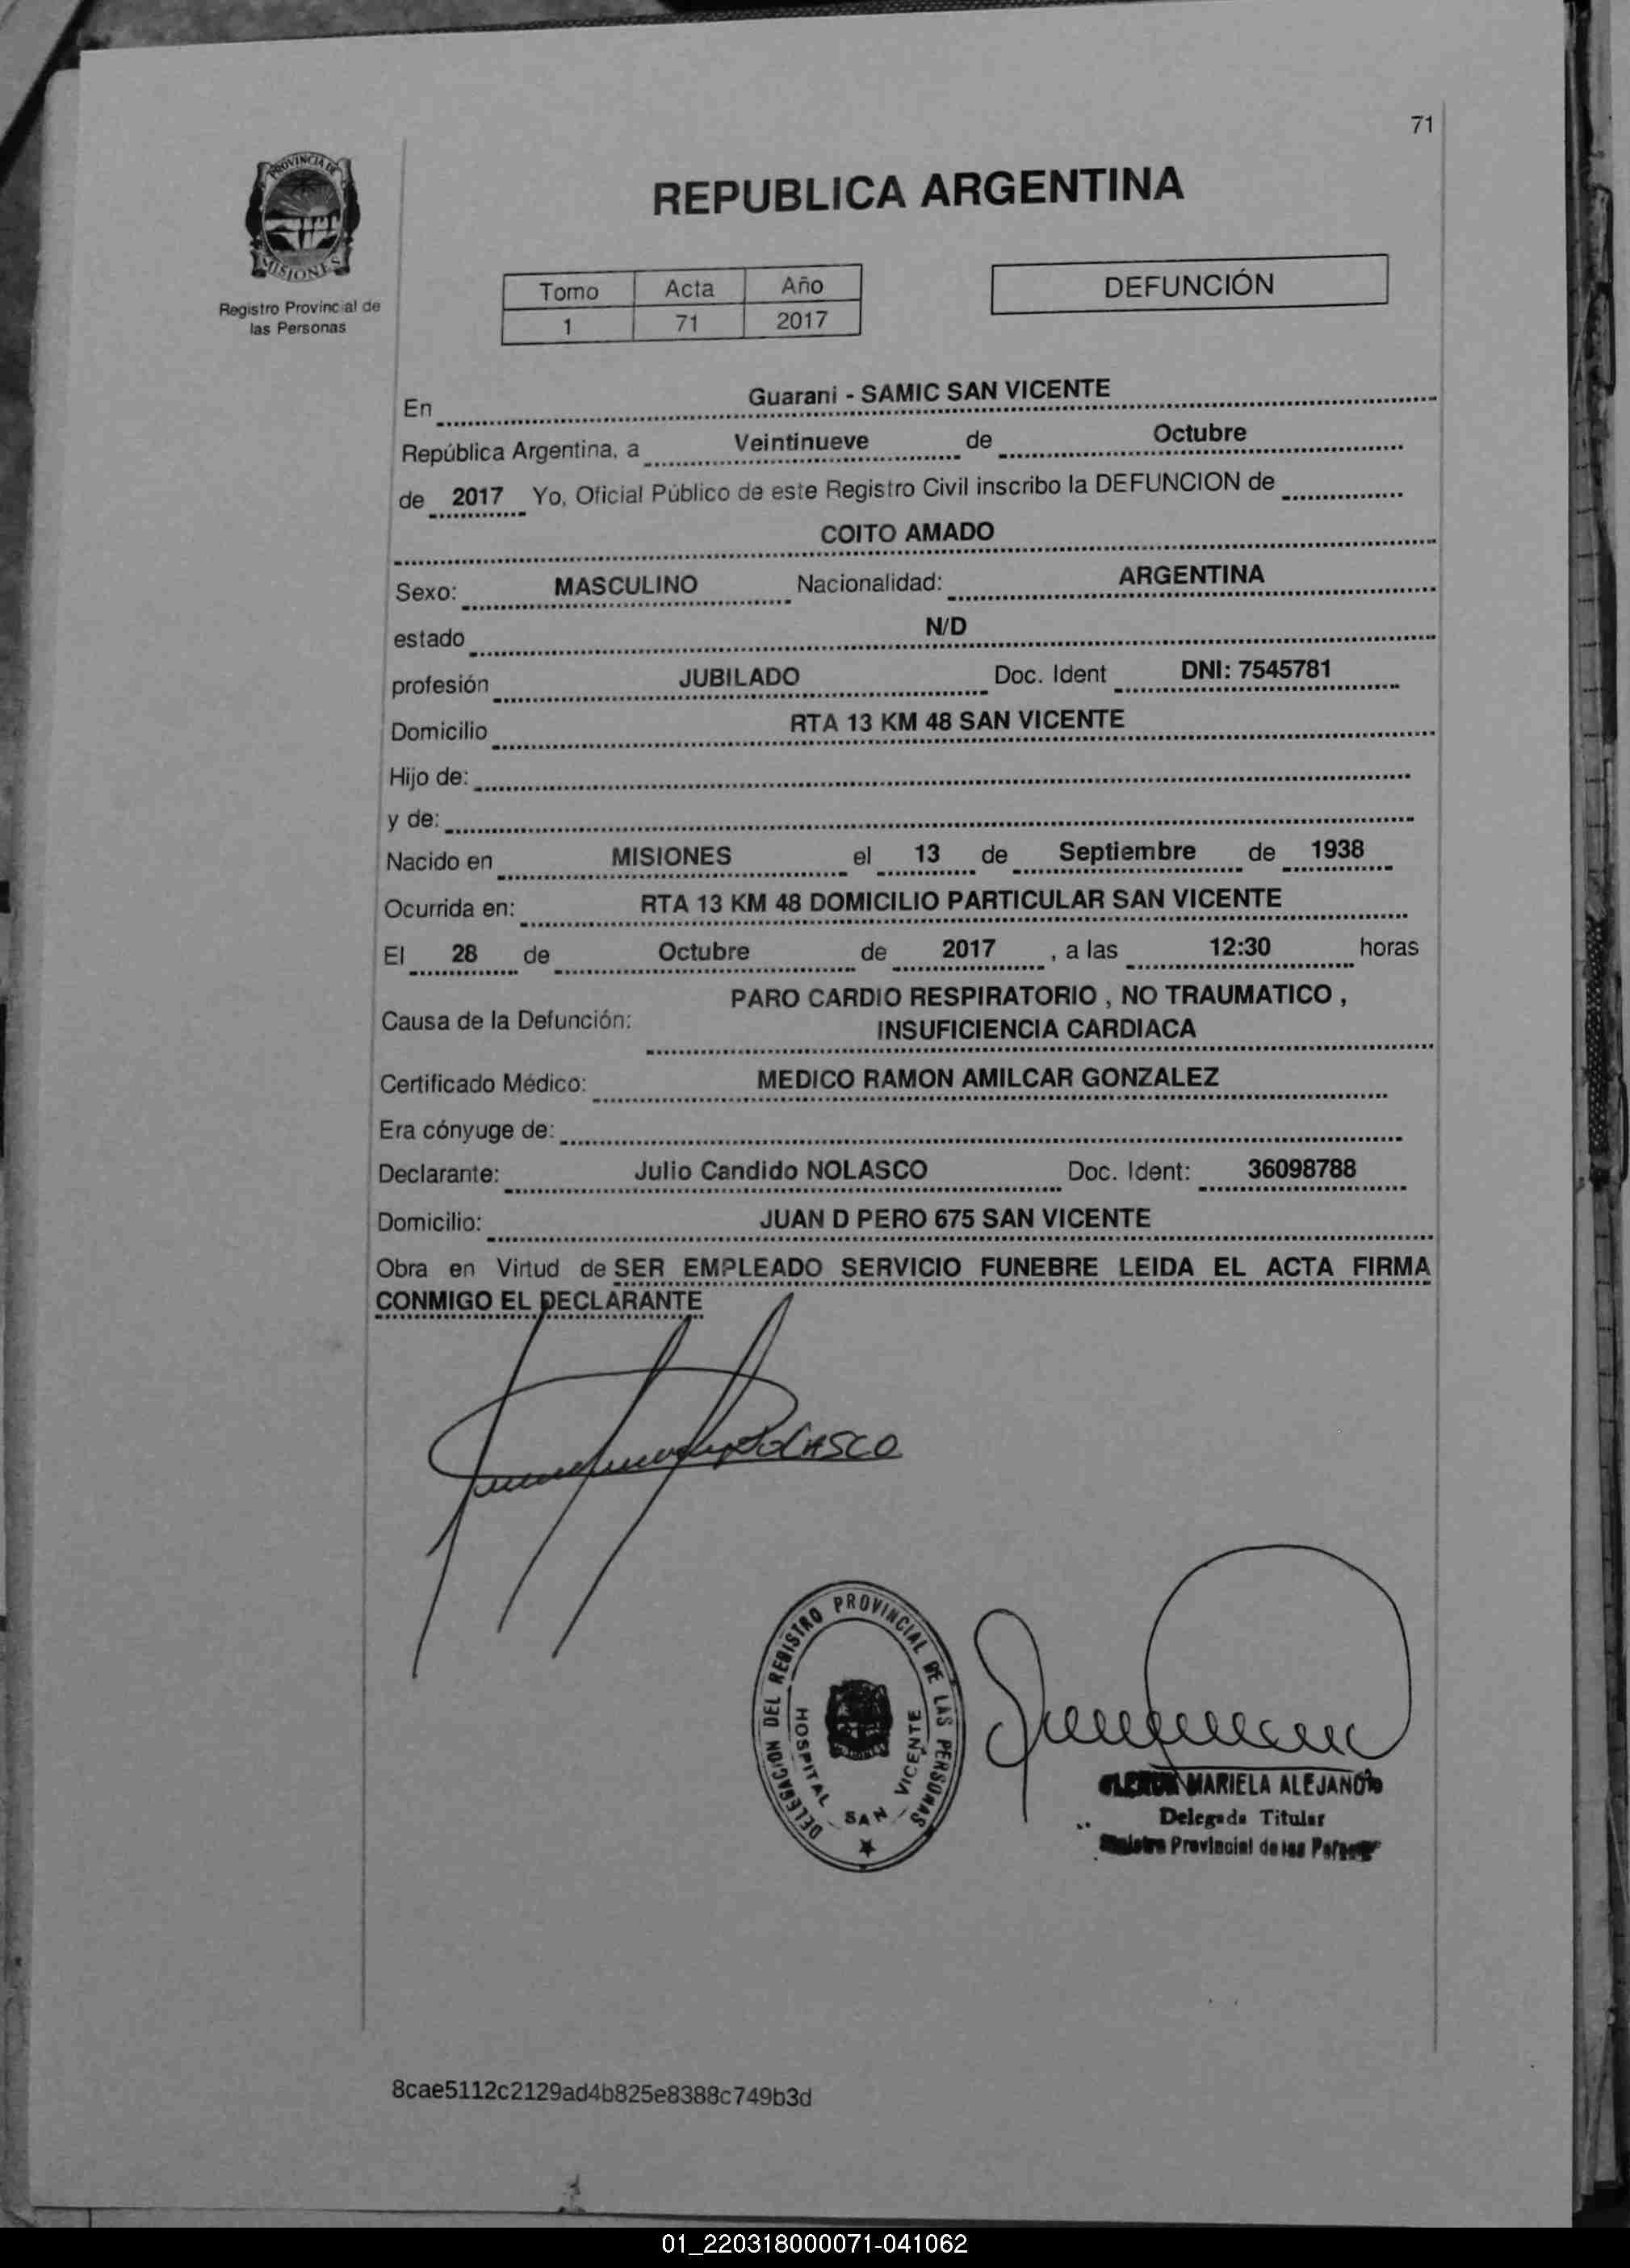 71
PROVINCIA DE
MISIONES
Registro Provincial de
las Personas
REPUBLICA ARGENTINA
Tomo Acta Año
1 71 2017
DEFUNCIÓN
En Guarani - SAMIC SAN VICENTE
República Argentina, a Veintinueve de Octubre
de 2017 Yo, Oficial Público de este Registro Civil inscribo la DEFUNCION de
COITO AMADO
Sexo: MASCULINO Nacionalidad: ARGENTINA
estado N/D
profesión JUBILADO Doc. Ident DNI: 7545781
Domicilio RTA 13 KM 48 SAN VICENTE
Hijo de:
y de:
Nacido en MISIONES el 13 de Septiembre de 1938
Ocurrida en: RTA 13 KM 48 DOMICILIO PARTICULAR SAN VICENTE
El 28 de Octubre de 2017 , a las 12:30 horas
Causa de la Defunción: PARO CARDIO RESPIRATORIO , NO TRAUMATICO ,
INSUFICIENCIA CARDIACA
Certificado Médico: MEDICO RAMON AMILCAR GONZALEZ
Era cónyuge de:
Declarante: Julio Candido NOLASCO Doc. Ident: 36098788
Domicilio: JUAN D PERO 675 SAN VICENTE
Obra en Virtud de SER EMPLEADO SERVICIO FUNEBRE LEIDA EL ACTA FIRMA
CONMIGO EL DECLARANTE
NOLASCO
DELEGACION DEL REGISTRO PROVINCIAL DE LAS PERSONAS
HOSPITAL SAN VICENTE
MARIELA ALEJANDRA
Delegada Titular
Provincial de las
8cae5112c2129ad4b825e8388c749b3d
01_220318000071-041062